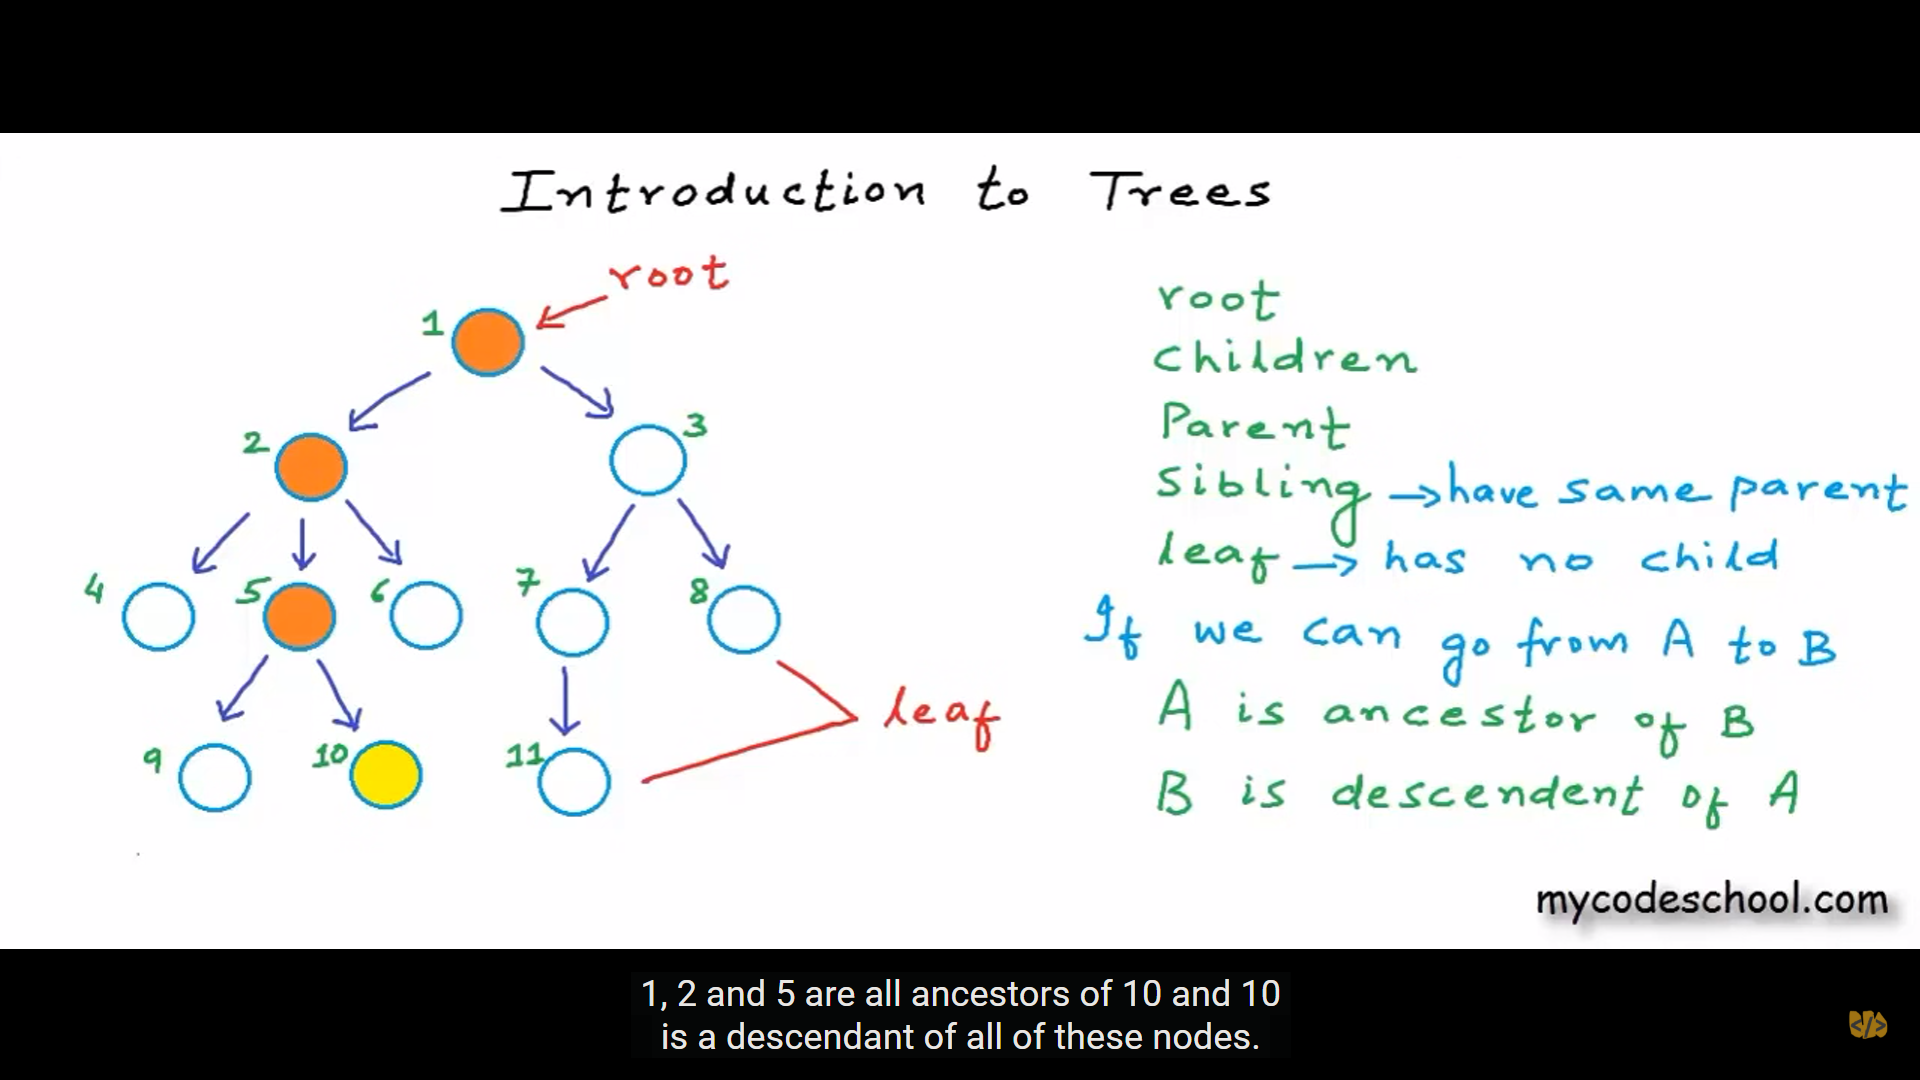 Introduction to Trees
root
1
2
3
4
5
6
7
8
9
10
11
leaf
root
children
Parent
Sibling → have same parent
leaf → has no child
If we can go from A to B
A is ancestor of B
B is descendent of A
mycodeschool.com
1, 2 and 5 are all ancestors of 10 and 10
is a descendant of all of these nodes.